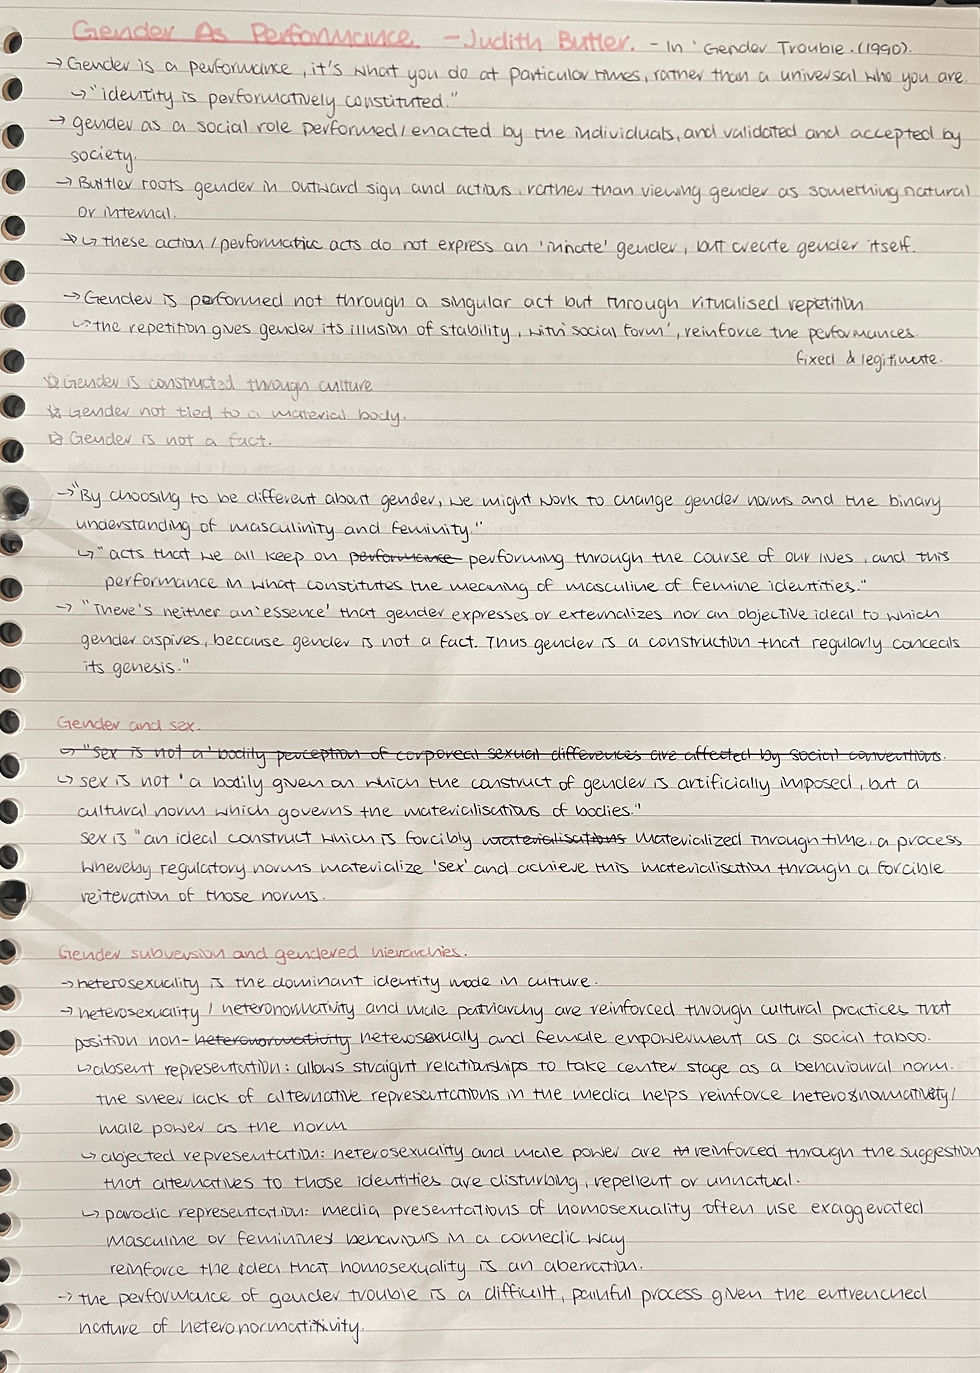 Gender As Performance. - Judith Butler. - In 'Gender Trouble.(1990).
→ Gender is a performance, it's what you do at particular times, rather than a universal who you are.
↳ "identity is performatively constituted."
→ gender as a social role performed/enacted by the individuals, and validated and accepted by
society.
→ Buttler roots gender in outward sign and actions, rather than viewing gender as something natural
or internal.
→ ↳ these action/performative acts do not express an 'innate' gender, but create gender itself.
→ Gender is performed not through a singular act but through ritualised repetition
↳ the repetition gives gender its illusion of stability, with 'social form', reinforce the performances.
fixed & legitimate.
☆ Gender is constructed through culture
☆ Gender not tied to a material body.
☆ Gender is not a fact.
→ "By choosing to be different about gender, we might work to change gender norms and the binary
understanding of masculinity and feminity."
↳ "acts that we all keep on performance performing through the course of our lives, and this
performance in what constitutes the meaning of masculine of femine identities."
→ "There's neither an 'essence' that gender expresses or externalizes nor an objective ideal to which
gender aspires, because gender is not a fact. Thus gender is a construction that regularly conceals
its genesis."
Gender and sex.
↳ "sex is not a' bodily perception of corporeal sexual differences are affected by social conventions.
↳ sex is not 'a bodily given on which the construct of gender is artificially imposed, but a
cultural norm which governs the materialisations of bodies."
sex is "an ideal construct which is forcibly materialisations materialized through time. a process
whereby regulatory norms materialize 'sex' and achieve this materialisation through a forcible
reiteration of those norms.
Gender subversion and gendered hierarchies.
→ heterosexuality is the dominant identity mode in culture.
→ heterosexuality / heteronormativity and male patriarchy are reinforced through cultural practices that
position non-heteronormativity heterosexually and female empowerment as a social taboo.
↳ absent representation: allows straight relationships to take center stage as a behavioural norm.
the sheer lack of alternative representations in the media helps reinforce heteronormativity/
male power as the norm
↳ abjected representation: heterosexuality and male power are reinforced through the suggestion
that alternatives to those identities are disturbing, repellent or unnatural.
↳ parodic representation: media presentations of homosexuality often use exaggerated
masculine or feminine behaviours in a comedic way
reinforce the idea that homosexuality is an aberration.
→ the performance of gender trouble is a difficult, painful process given the entrenched
nature of heteronormativity.